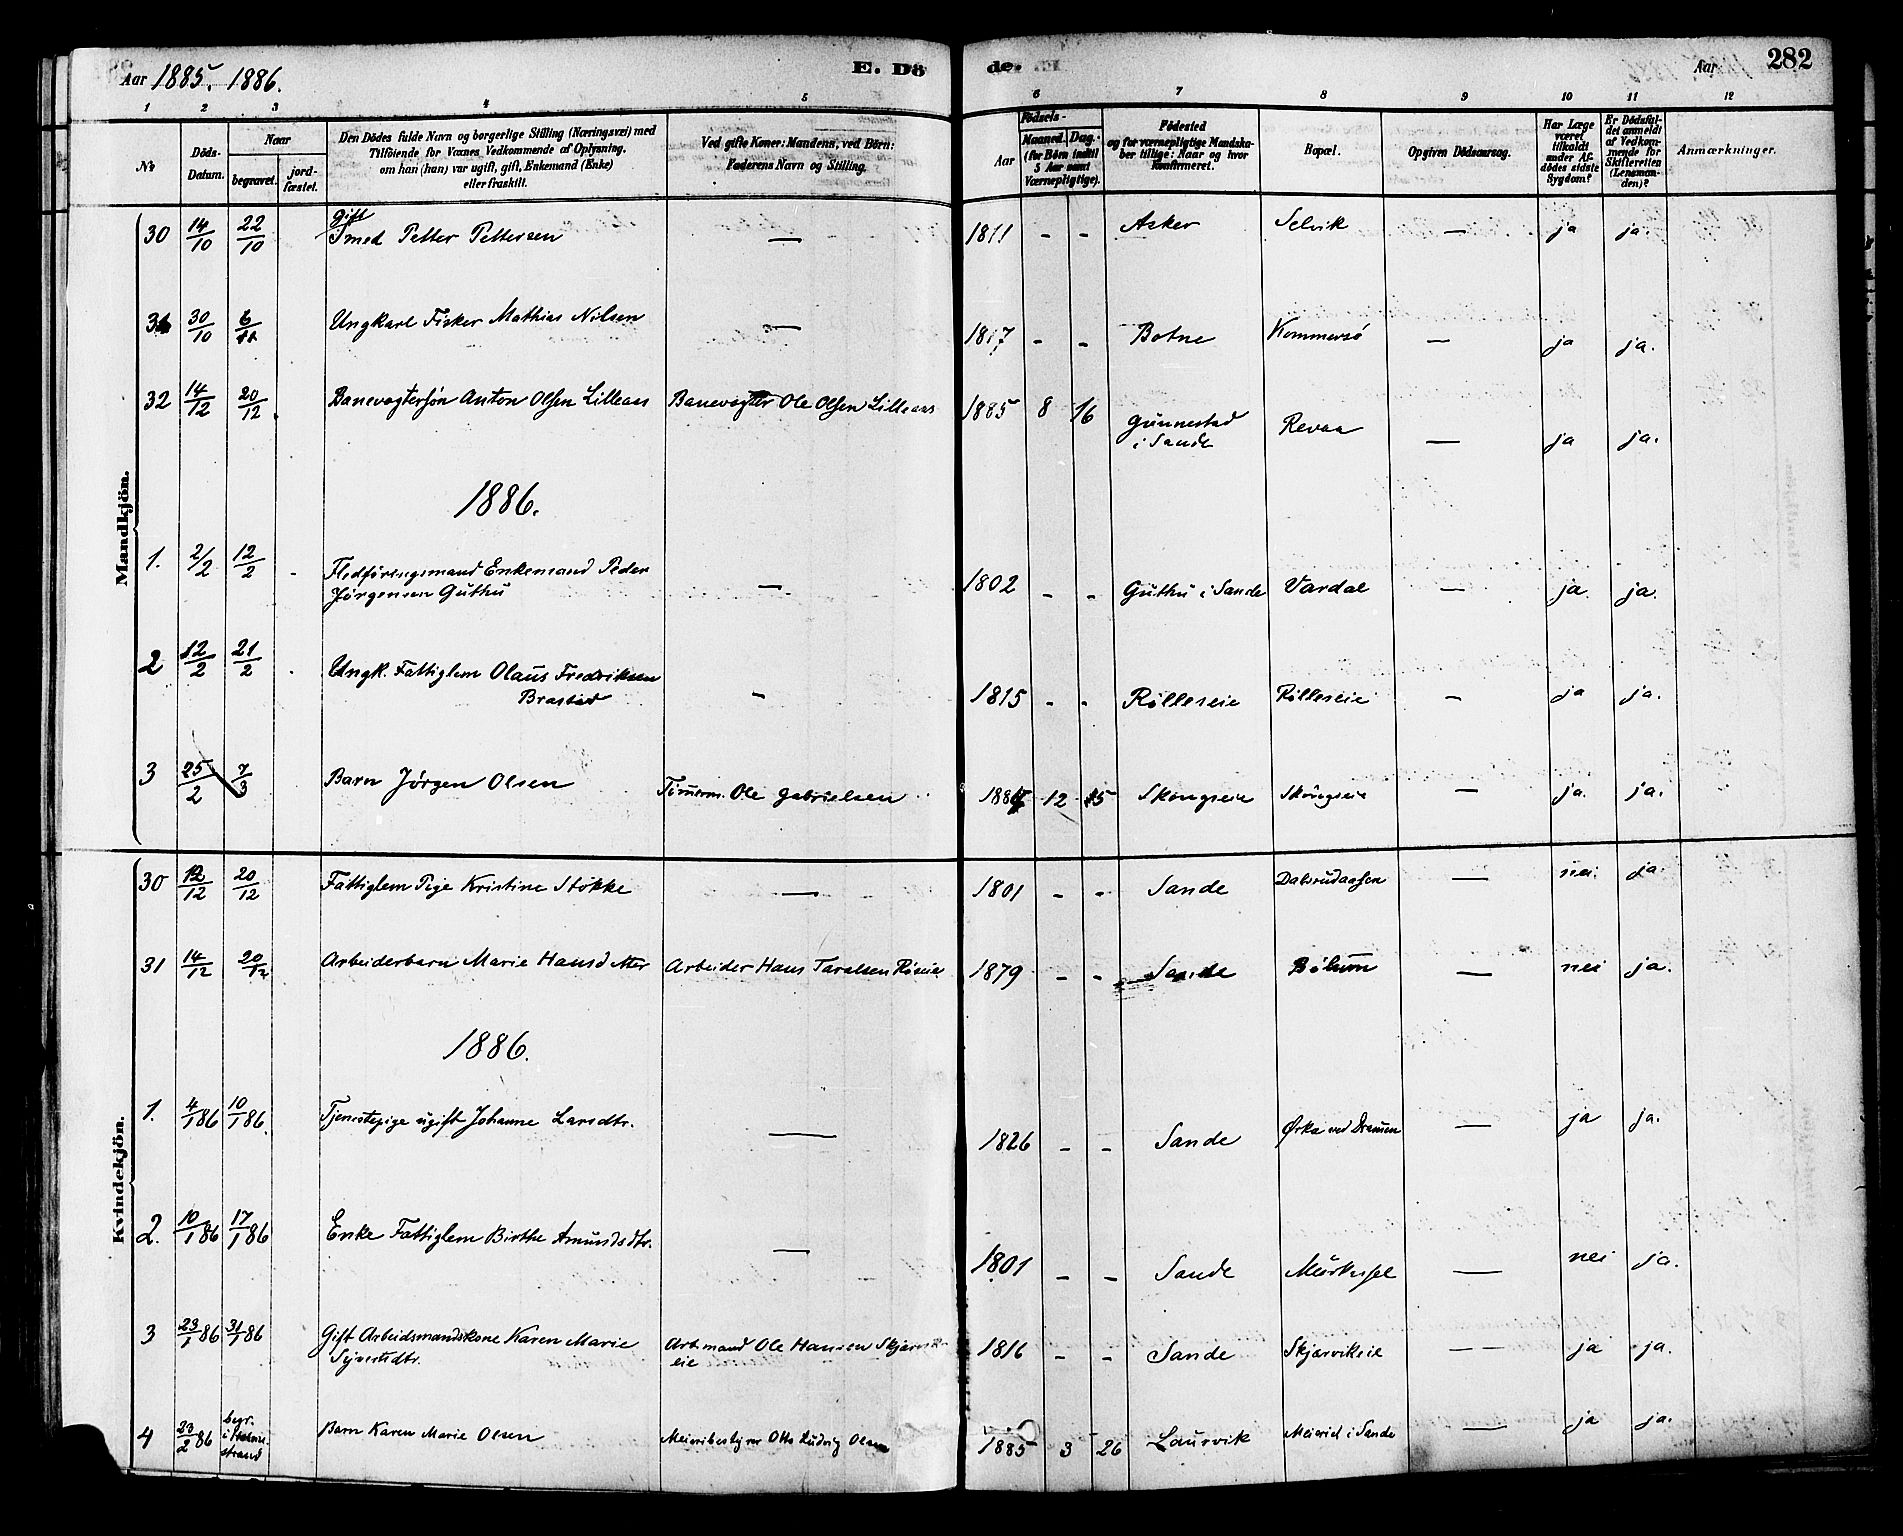 Aar 1885. 1886.
E. Dö
de.
Aar
282
1 2 3 4 5 6 7 8 9 10 11 12
No
Döds-
Datum.
Naar
begravet.
jord-
fæstet.
Den Dödes fulde Navn og borgerlige Stilling (Næringsvei) med
Tilföiende for Voxnes Vedkommende af Oplysning,
om han (hun) var ugift, gift, Enkemand (Enke)
eller fraskilt.
Ved gifte Koner: Mandens, ved Börn:
Faderens Navn og Stilling.
Födsels-
Aar
Maaned.
Dag.
(for Börn indtil
5 Aar samt
Værnepligtige).
Födested
og for værnepligtige Mandska-
ber tillige: Naar og hvor
konfirmeret.
Bopæl.
Opgiven Dödsaarsag.
Har Læge
været
tilkaldt
under Af-
dödes sidste
Sygdom?
Er Dödsfal-
det anmeldt
af Vedkom-
mende for
Skifteretten
(Lensman-
den)?
Anmærkninger.
Mandkjön.
30 14/10 22/10 gift Smed Petter Pettersen — 1811 - - Asker Selvik — ja ja.
31 30/10 6/11 Ungkarl Fisker Mathias Nilsen — 1817 - - Botne Kommersø — ja ja.
32 14/12 20/12 Banevogtersøn Anton Olsen Lilleaas Banevogter Ole Olsen Lilleaas 1885 8 16 Gunnestad
i Sande Revaa — ja ja.
1886.
1. 2/2 12/2 Fledføringsmand Enkemand Peder
Jørgensen Guthu — 1802 - - Guthu i Sande Vardal — ja. ja.
2 12/2 21/2 Ungk. Fattiglem Olaus Fredriksen
Brastad — 1815 - - Rølleseie Rølleseie — ja ja.
3 25/2 7/3 Barn Jørgen Olsen Tømerm. Ole Gabrielsen 12 15 Skougseie Skougseie — ja. ja.
Kvindekjön.
30 12/12 20/12 Fattiglem Pige Kristine Stokke — 1801 - - Sande — nei. ja.
31 14/12 20/12 Arbeiderbarn Marie Hansdatter Arbeider Hans Taralsen 1879 - - Sande Bølum — nei ja.
1886.
1. 4/1 86 10/1 86. Tjenestepige ugift Johanne Larsdtr. — 1826 - - Sande Ørka ved Dramen — ja ja.
2. 10/1 86 17/1 86 Enke Fattiglem Birthe Amundsdtr. — 1801 - - Sande — nei ja.
3 23/1 86 31/1 86 Gift Arbeidsmandskone Karen Marie
Syverstdtr. Arb.mand Ole Hansen Skjærvik-
eie 1816 - - Sande Skjærvikeie — — ja ja.
4 23/2 86 begr.
i Holme-
strand Barn Karen Marie Olsen Meieribestyrer Otto Ludvig Olsen 1885 3 26 Laurvik Meieriet i Sande ja ja.